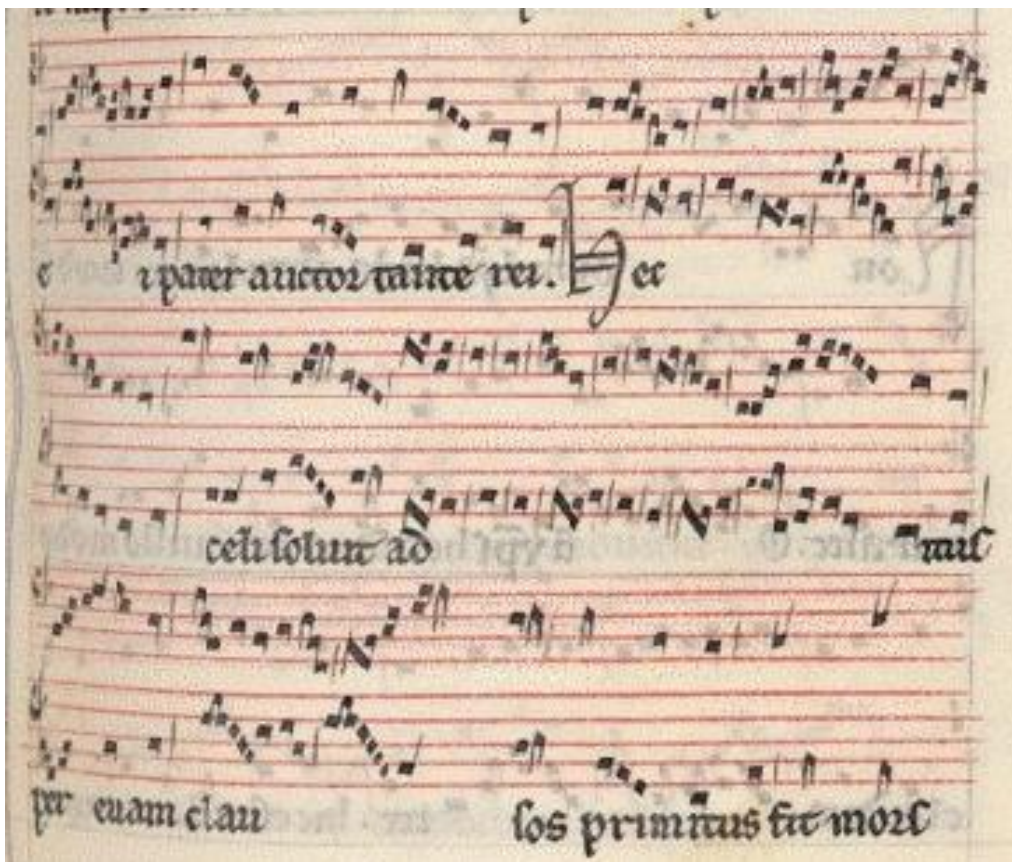 e i pater auctor tante rei. Hec
celi solium ad mus
per euam clau sos primitus fit mors